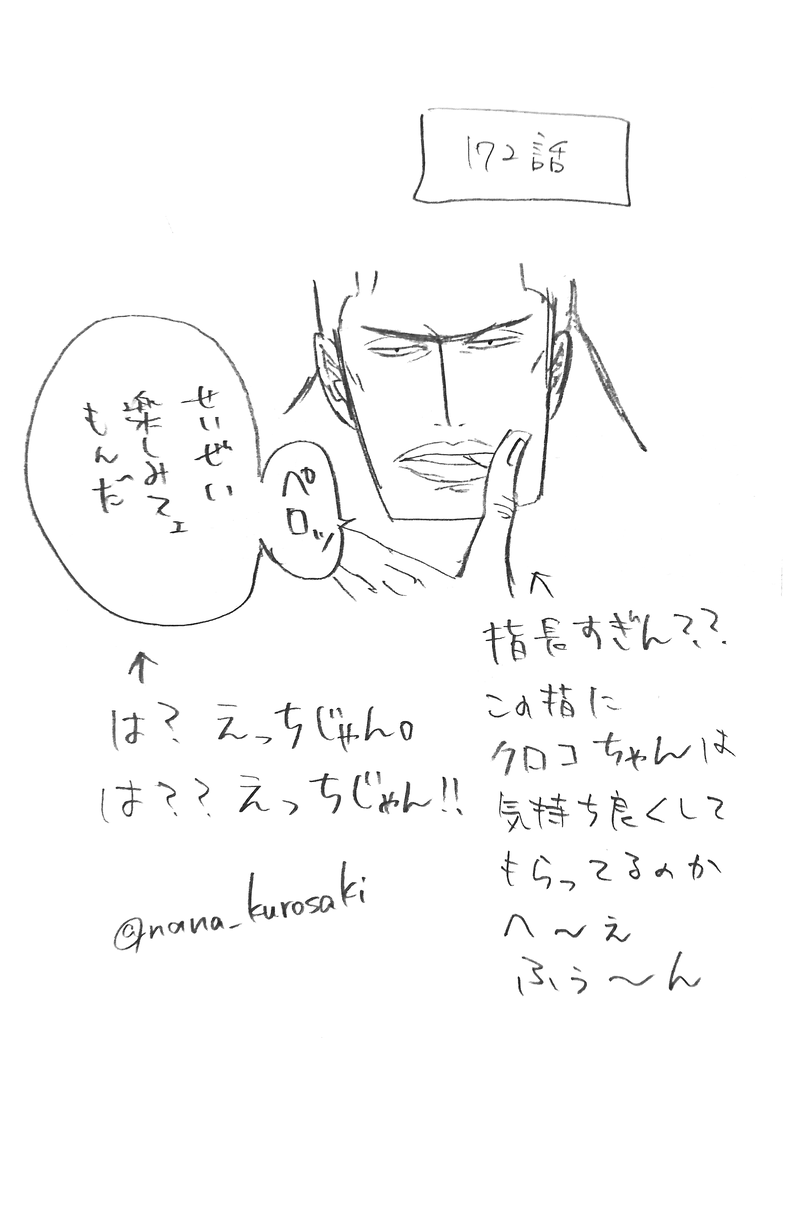 172話
せいぜい
楽しみてェ
もんだ
ペロッ
↑
は？えっちじゃん。
は？？えっちじゃん!!
@nana_kurosaki
↑
指長すぎん？？
この指に
クロコちゃんは
気持ち良くして
もらってるのか
へ〜え
ふぅ〜ん